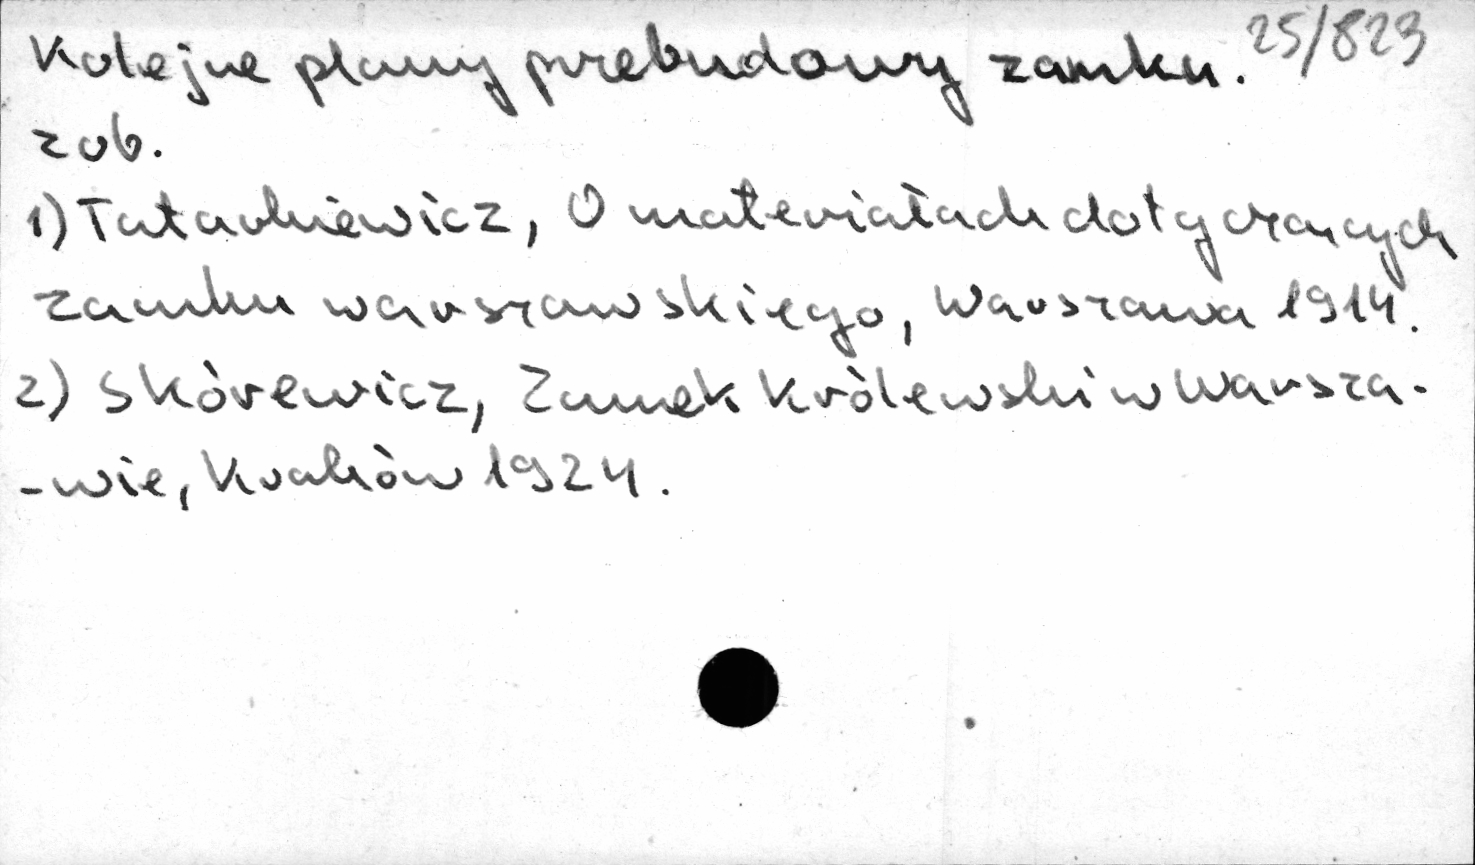 Kolejne plany przebudowy zamku. 25/823
zob.
1) Tatarkiewicz, O materiałach dotyczących
zamku warszawskiego, Warszawa 1914.
2) Skórewicz, Zamek Królewski w Warsza-
-wie, Kraków 1924.